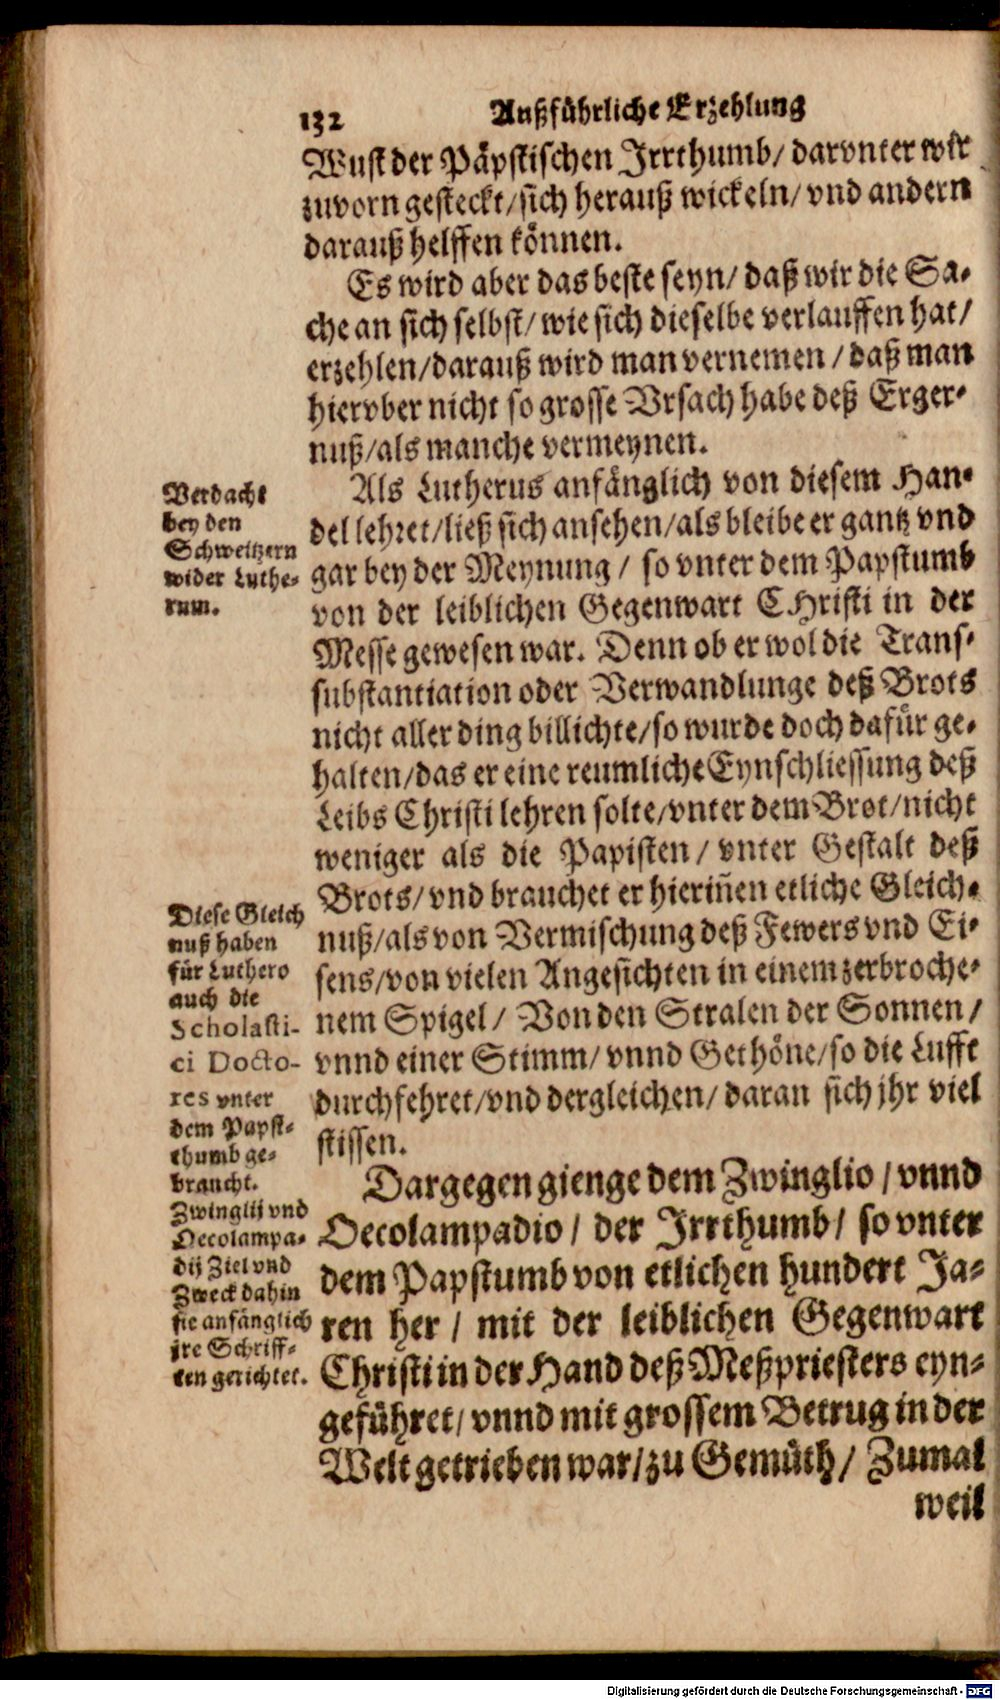 132 Außführliche Erzehlung
Wust der Päpstischen Irrthumb/ darvnter wir
zuvorn gesteckt/sich herauß wickeln/ vnd andern
darauß helffen können.
Es wird aber das beste seyn/ daß wir die Sa-
che an sich selbst/ wie sich dieselbe verlauffen hat/
erzehlen/darauß wird man vernemen / daß man
hiervber nicht so grosse Vrsach habe deß Erger-
nuß/als manche vermeynen.
Verdacht
bey den
Schweitzern
wider Luthe-
rum.
Als Lutherus anfänglich von diesem Han-
del lehret/ließ sich ansehen/als bleibe er gantz vnd
gar bey der Meynung / so vnter dem Papstumb
von der leiblichen Gegenwart CHristi in der
Messe gewesen war. Denn ob er wol die Trans-
substantiation oder Verwandlunge deß Brots
nicht aller ding billichte/so wurde doch dafür ge-
halten/das er eine reumliche Eynschliessung deß
Leibs Christi lehren solte/vnter dem Brot/nicht
weniger als die Papisten/ vnter Gestalt deß
Brots/ vnd brauchet er hieriñen etliche Gleich-
nuß/als von Vermischung deß Fewers vnd Ei-
sens/von vielen Angesichten in einem zerbroche-
nem Spigel/ Von den Stralen der Sonnen/
vnnd einer Stimm/ vnnd Gethöne/so die Lufft
durchfehret/vnd dergleichen/ daran sich jhr viel
stissen.
Diese Gleich
nuß haben
für Luthero
auch die
Scholasti-
ci Docto-
res vnter
dem Papst-
thumb ge-
braucht.
Zwinglij vnd
Oecolampa-
dij Ziel vnd
Zweck dahin
sie anfänglich
jre Schriff-
ten gerichtet.
Dargegen gienge dem Zwinglio / vnnd
Oecolampadio / der Irrthumb/ so vnter
dem Papstumb von etlichen hundert Ja-
ren her / mit der leiblichen Gegenwart
Christi in der Hand deß Meßpriesters eyn-
geführet/ vnnd mit grossem Betrug in der
Welt getrieben war/zu Gemüth/ Zumal
weil
Digitalisierung gefördert durch die Deutsche Forschungsgemeinschaft - DFG